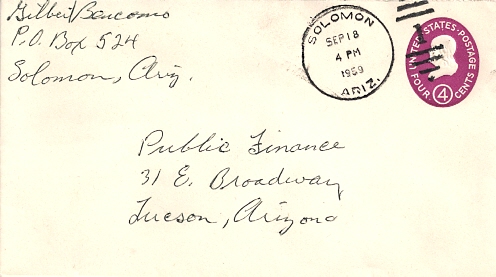 Gilbert Bencomo
P.O. Box 524
Solomon, Ariz.
SOLOMON
SEP 18
4 PM
1959
ARIZ.
UNITED·STATES·POSTAGE
FOUR 4 CENTS
Public Finance
31 E. Broadway
Tucson, Arizona